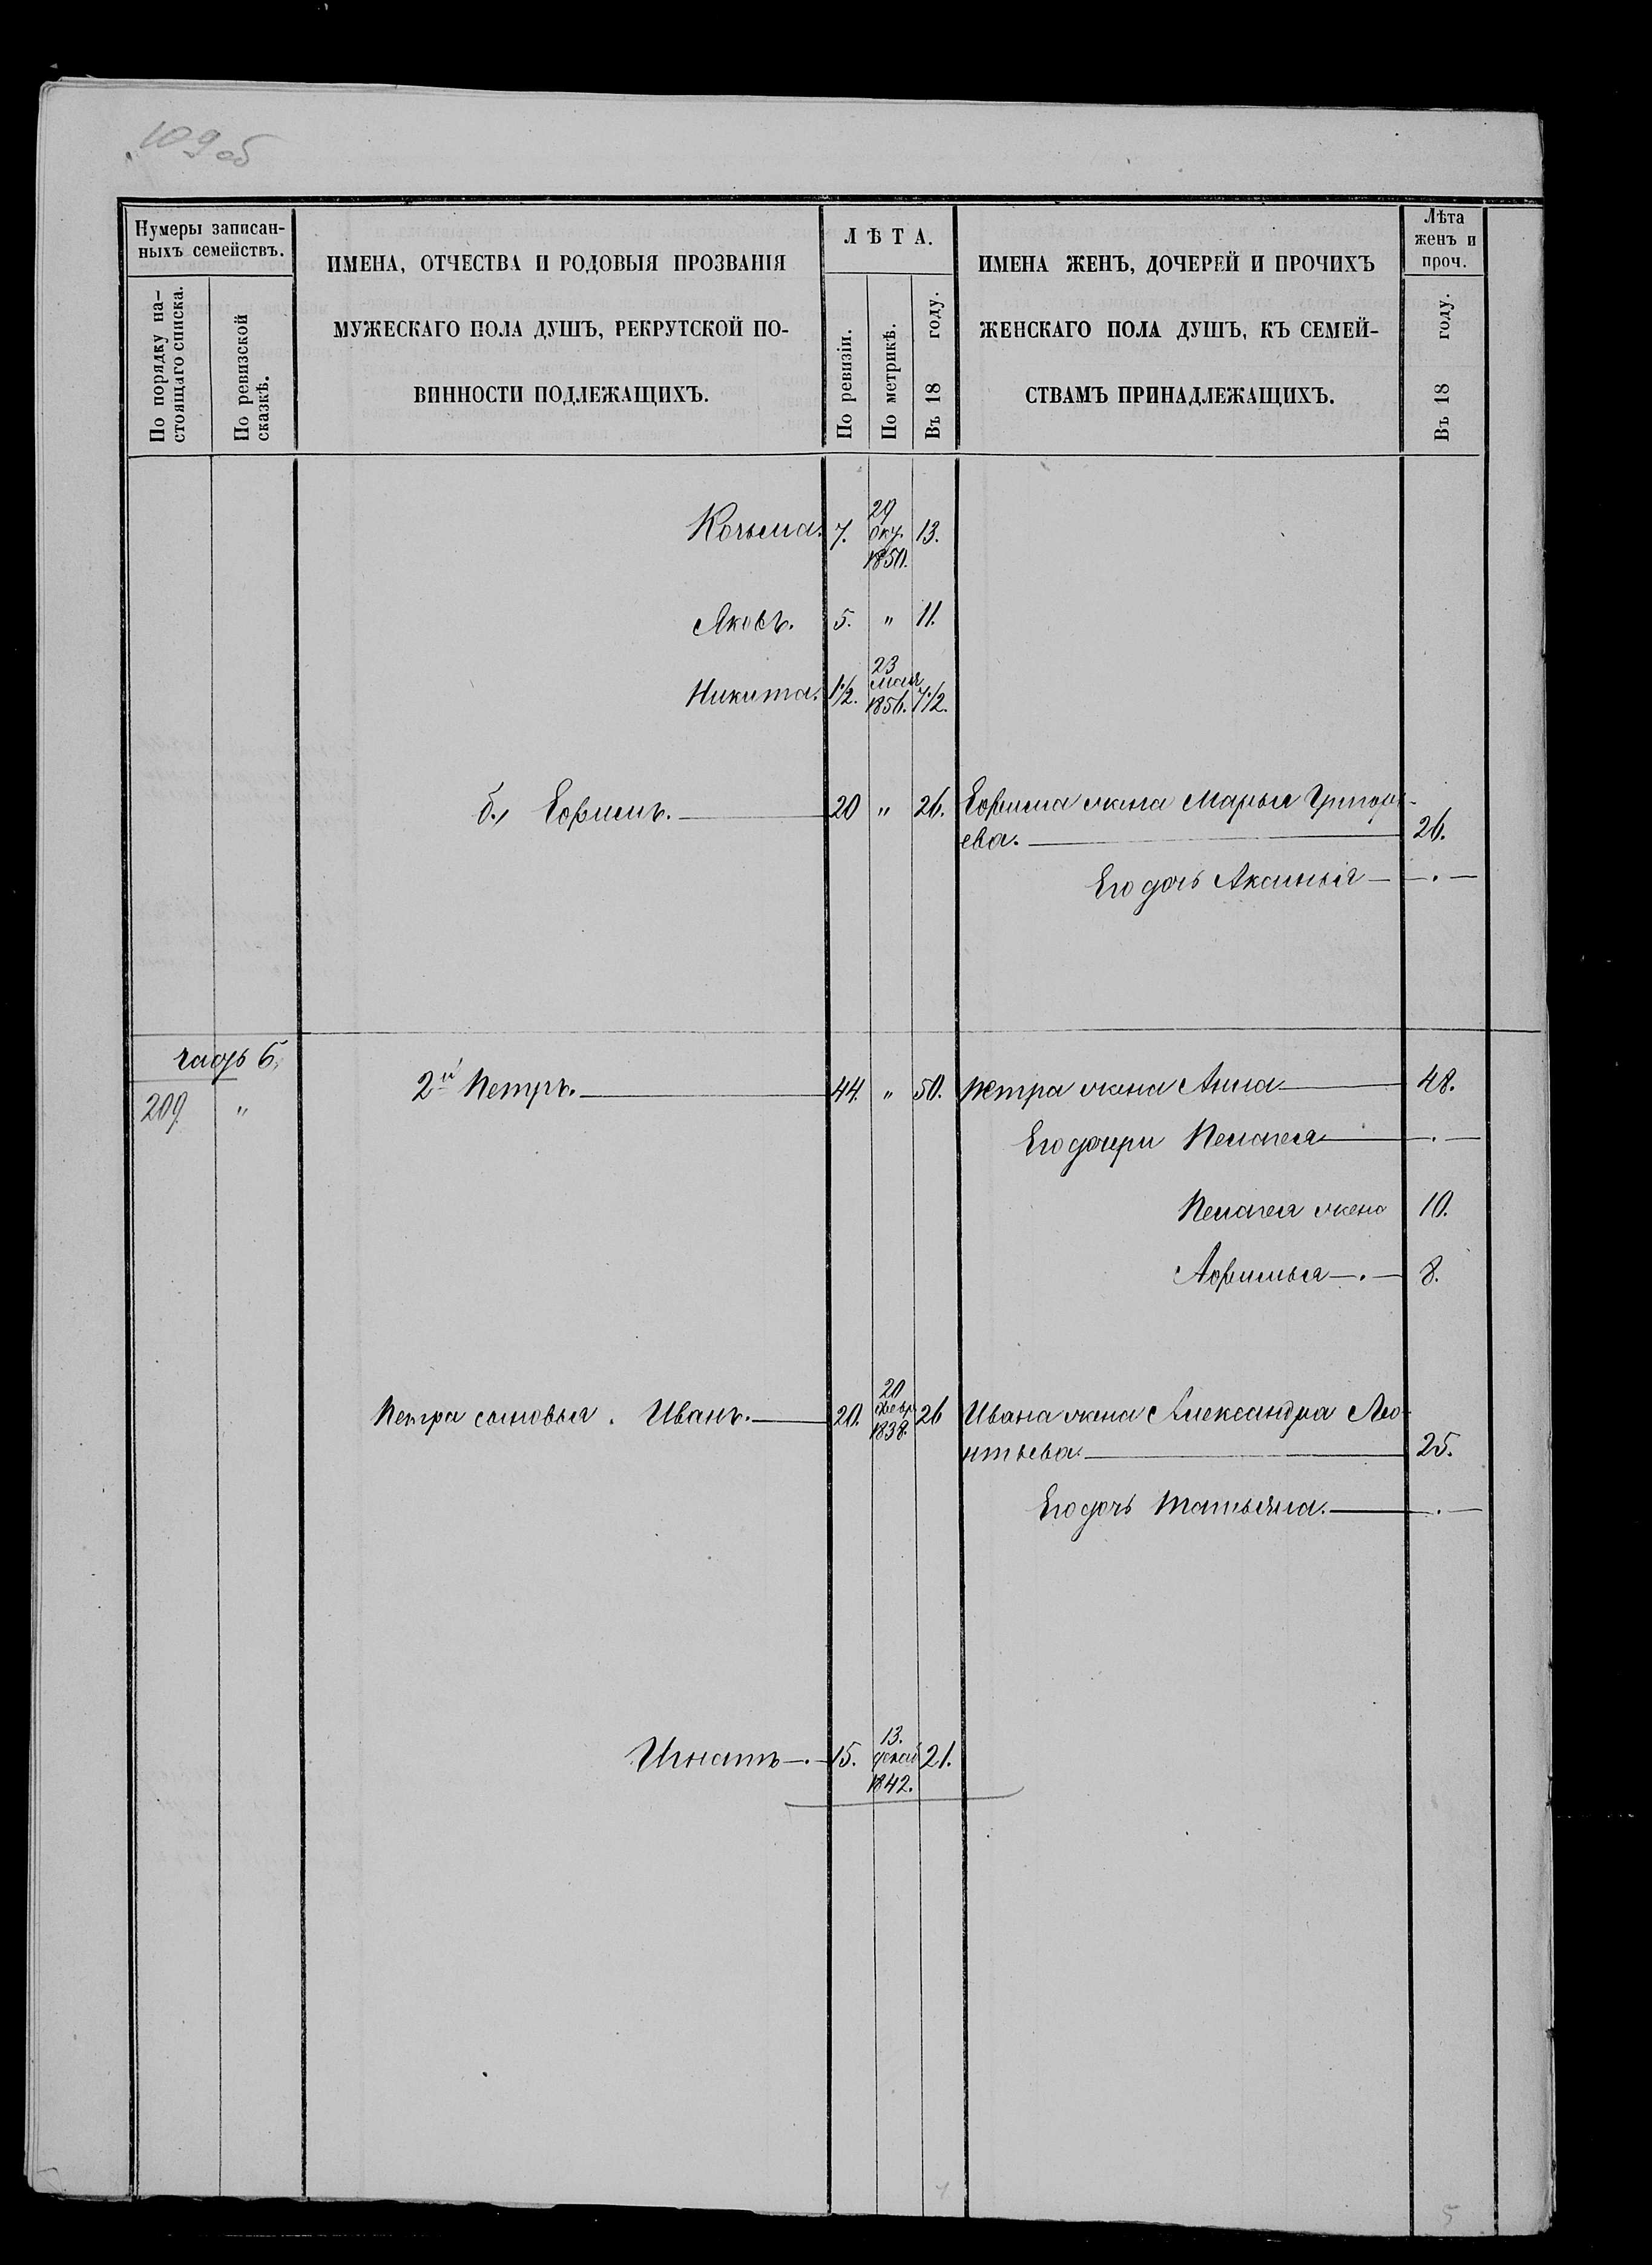 109 об
Нумеры записан-
ныхъ семействъ.
По порядку на-
стоящаго списка.
По ревизской
сказкѣ.
ИМЕНА, ОТЧЕСТВА И РОДОВЫЯ ПРОЗВАНІЯ
МУЖЕСКАГО ПОЛА ДУШЪ, РЕКРУТСКОЙ ПО-
ВИННОСТИ ПОДЛЕЖАЩИХЪ.
ЛѢТА.
По ревизіи.
По метрикѣ.
Въ 18 году.
ИМЕНА ЖЕНЪ, ДОЧЕРЕЙ И ПРОЧИХЪ
ЖЕНСКАГО ПОЛА ДУШЪ, КЪ СЕМЕЙ-
СТВАМЪ ПРИНАДЛЕЖАЩИХЪ.
Лѣта
женъ и
проч.
Въ 18 году.
Козьма. 7. 29 окт. 1850. 13.
Яковъ. 5. " 11.
Никита. 1½. 23 мая 1856. 7½.
б., Ефимъ. 20 " 26. Ефима жена Марья Григорь-
ева. 26.
Его дочь Аксинья — . —
часть 6,
209. " 2й Петръ. 44. " 50. Петра жена Анна 48.
Его дочери Пелагея — . —
Пелагея жена 10.
Афимья — . — 8.
Петра сыновья. Иванъ. 20. 20 февр. 1838. 26 Ивана жена Александра Лео-
нтьева. 25.
Его дочь Татьяна. — . —
Игнатъ — . — 15. 13. декаб 1842. 21.
5